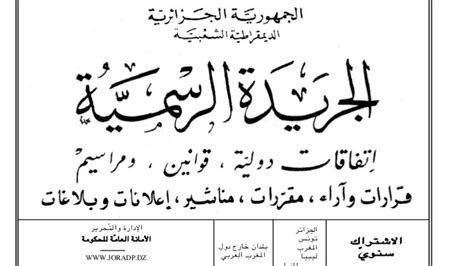 الجمهورية الجزائرية
الديمقراطية الشعبية
الجريدة الرسمية
إتفاقات دولية ، قوانين ، ومراسيم
قرارات وآراء ، مقررات ، مناشير ، إعلانات وبلاغات
الاشتراك
سنوي
الجزائر
تونس
المغرب
ليبيا
بلدان خارج دول
المغرب العربي
الإدارة والتحرير
الأمانة العامة للحكومة
WWW.JORADP.DZ